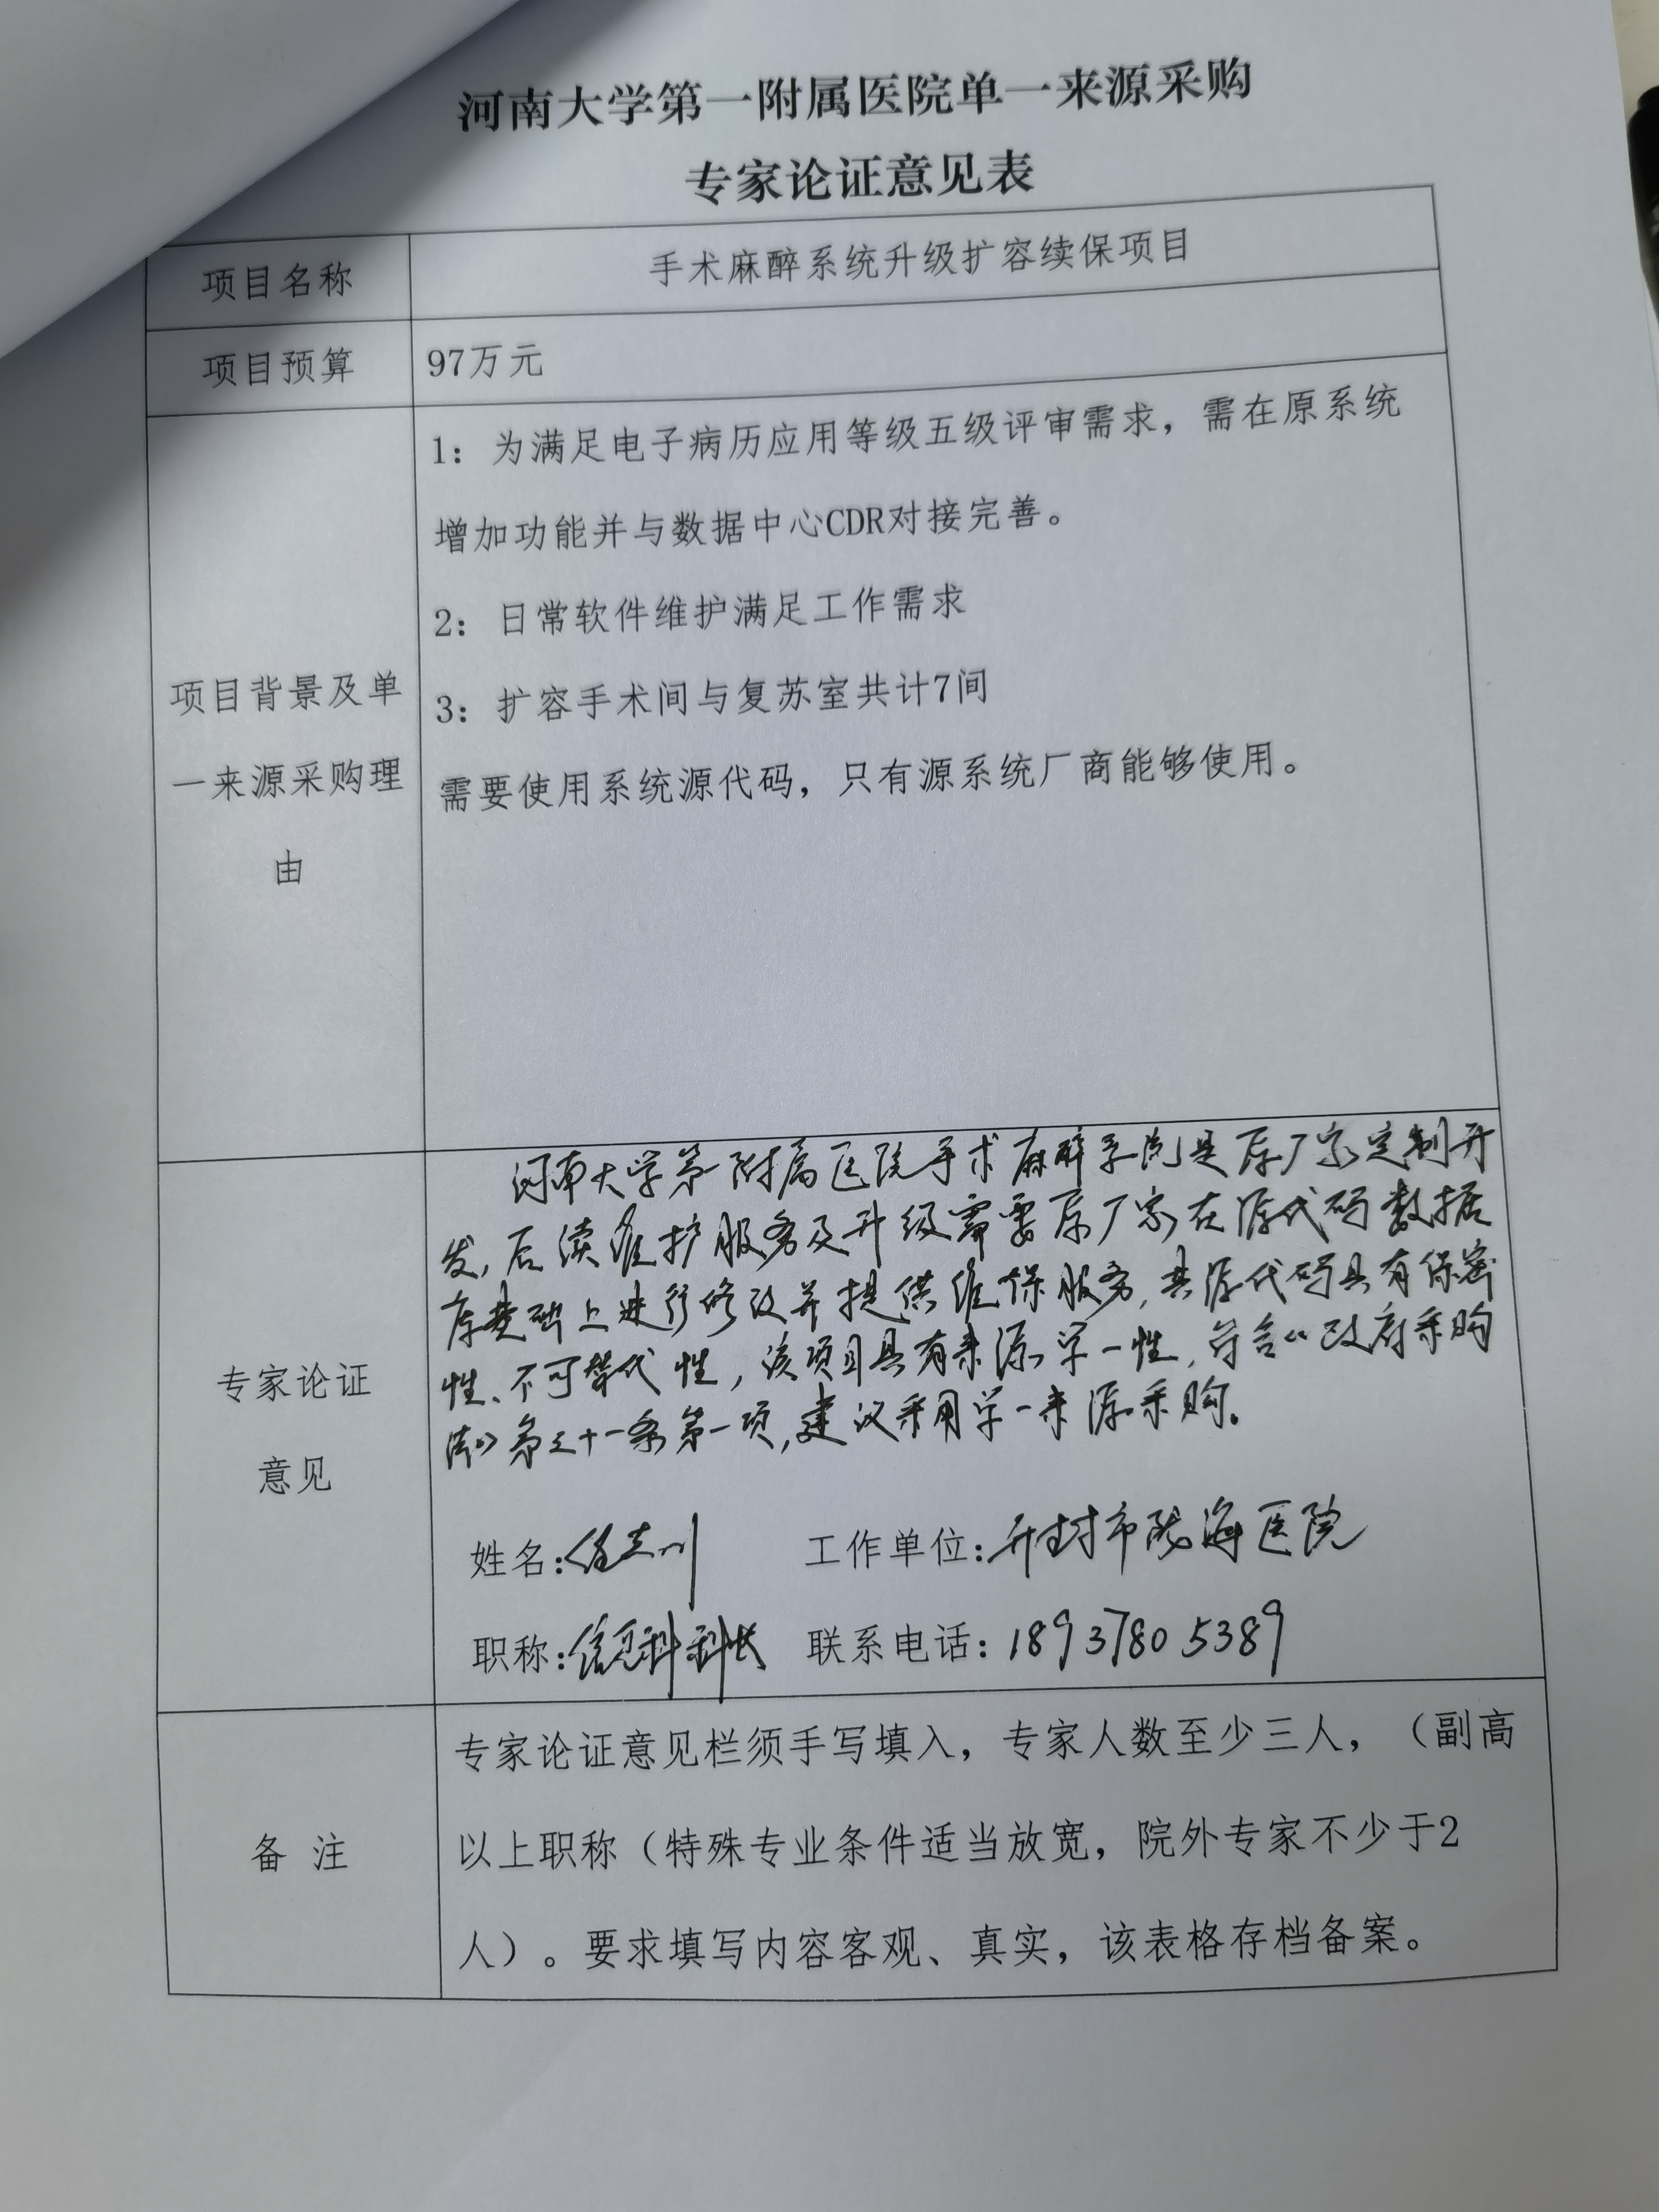 河南大学第一附属医院单一来源采购
专家论证意见表
项目名称
手术麻醉系统升级扩容续保项目
项目预算
97万元
项目背景及单
一来源采购理
由
1：为满足电子病历应用等级五级评审需求，需在原系统
增加功能并与数据中心CDR对接完善。
2：日常软件维护满足工作需求
3：扩容手术间与复苏室共计7间
需要使用系统源代码，只有源系统厂商能够使用。
专家论证
意见
河南大学第一附属医院手术麻醉系统是原厂家定制开
发，后续维护服务及升级需要原厂家在源代码数据
库基础上进行修改并提供维保服务，其源代码具有保密
性、不可替代性，该项目具有来源单一性，符合《政府采购
法》第三十一条第一项，建议采用单一来源采购。
姓名：任志川 工作单位：开封市陇海医院
职称：信息科科长 联系电话：18937805389
备 注
专家论证意见栏须手写填入，专家人数至少三人，（副高
以上职称（特殊专业条件适当放宽，院外专家不少于2
人）。要求填写内容客观、真实，该表格存档备案。